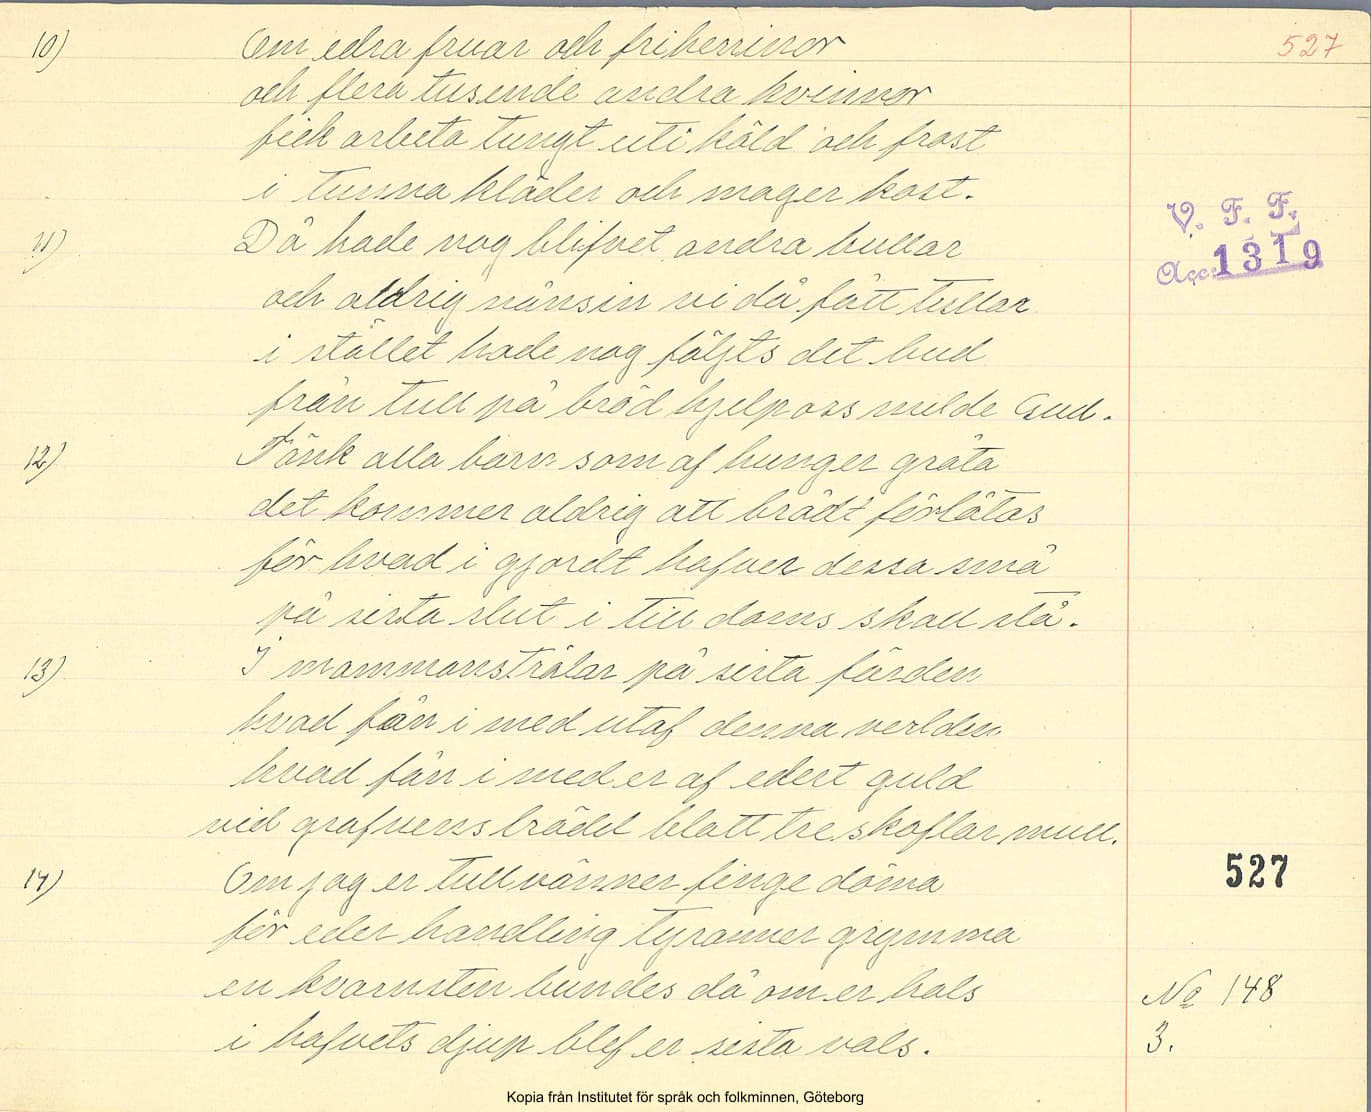 527
10) Om edra fruar och friherrinor
och flera tusende andra kvinnor
fick arbeta tungt uti köld och frost
i tunna kläder och mager kost.
V. F. F.
Acc. 1319
11) Då hade nog blifvet andra bullar
och aldrig nånsin vi då fått tullar
i stället hade nog följts det bud
från tull på bröd hjelp oss milde Gud.
12) Tänk alla barn som af hunger gråta
det kommer aldrig att brådt förlåtas
för hvad i gjordt hafver dessa små
på sista slut i till doms skall stå.
13) I mammonsträlar på sista färden
hvad fån i med utaf denna verlden
hvad fån i med er af edert guld
vid grafvens brädd blott tre skoflar mull.
527
14) Om jag er tullvänner finge döma
för eder handling tyranner grymma
en kvarnsten bundes då om er hals
i hafvets djup blef er sista vals.
No 148
3.
Kopia från Institutet för språk och folkminnen, Göteborg